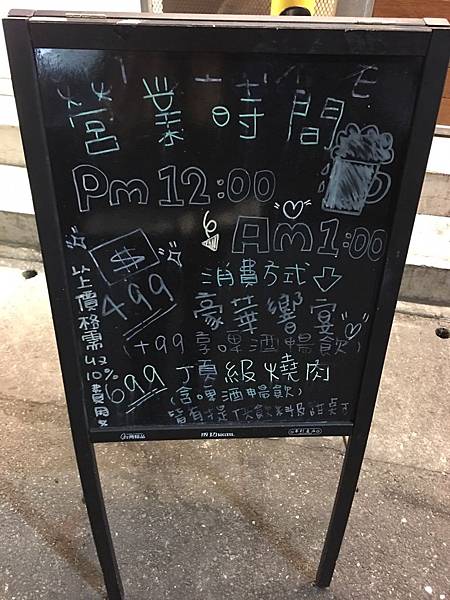 營業時間
Pm 12:00
Am 1:00
消費方式
$
499 豪華響宴
(+99 享啤酒暢飲)
699 頂級燒肉
(含啤酒暢飲)
皆有提供飲料及甜桌
以上價格需
10% 費用